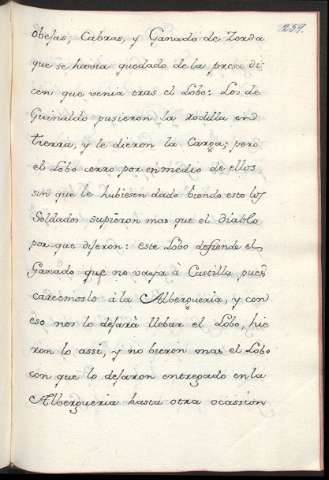 259.
obejas, Cabras, y Ganado de Zerda
que se havia quedado de la presa di-
cen que venia tras el Lobo: Los de
Guinaldo pusieron la rodilla en
tierra, y le dieron la Carga; pero
el Lobo corrio por en medio de ellos
sin que le hubiesen dado biendo esto los
Soldados supieron mas que el diablo
por que dijeron: este Lobo defiende el
Ganado que no vaya à Castilla pues
carèèmoslo à la Albergueria, y con
eso nos lo dejarà llebar el Lobo, hie
ron lo assi, y no bieron mas el Lobo
con que lo dejaron entregado en la
Albergueria hasta otra ocassion